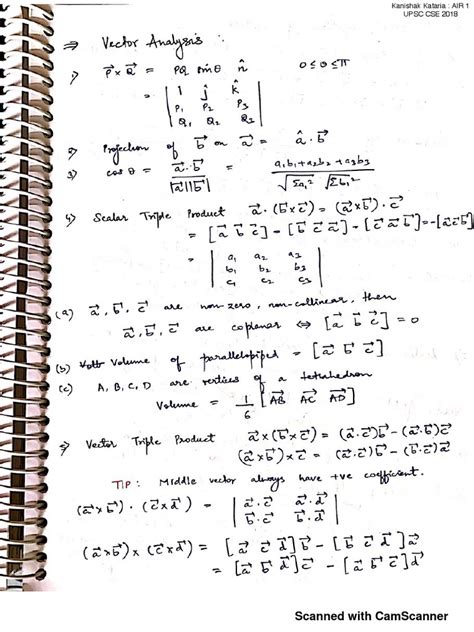 Kanishak Kataria : AIR 1
UPSC CSE 2018
⇒ Vector Analysis :
1) P⃗ × Q⃗ = PQ sinθ n̂ 0 ≤ θ ≤ π
= | î ĵ k̂ |
| P₁ P₂ P₃ |
| Q₁ Q₂ Q₃ |
2) Projection of b⃗ on a⃗ = â · b⃗
3) cos θ = a⃗ · b⃗ / |a⃗||b⃗| = a₁b₁+a₂b₂+a₃b₃ / √Σa₁² √Σb₁²
4) Scalar Triple Product a⃗ · (b⃗ × c⃗) = (a⃗ × b⃗) · c⃗
= [a⃗ b⃗ c⃗] = [b⃗ c⃗ a⃗] = [c⃗ a⃗ b⃗] = -[a⃗ c⃗ b⃗]
= | a₁ a₂ a₃ |
| b₁ b₂ b₃ |
| c₁ c₂ c₃ |
(a) a⃗, b⃗, c⃗ are non-zero, non-collinear, then
a⃗, b⃗, c⃗ are coplanar ⇔ [a⃗ b⃗ c⃗] = 0
(b) Volume of parallelopiped = [a⃗ b⃗ c⃗]
(c) A, B, C, D are vertices of a tetrahedron
Volume = 1/6 [AB⃗ AC⃗ AD⃗]
5) Vector Triple Product a⃗ × (b⃗ × c⃗) = (a⃗ · c⃗)b⃗ - (a⃗ · b⃗)c⃗
(a⃗ × b⃗) × c⃗ = (a⃗ · c⃗)b⃗ - (b⃗ · c⃗)a⃗
TIP : Middle vector always have +ve coefficient.
(a⃗ × b⃗) · (c⃗ × d⃗) = | a⃗ · c⃗ a⃗ · d⃗ |
| b⃗ · c⃗ b⃗ · d⃗ |
(a⃗ × b⃗) × (c⃗ × d⃗) = [a⃗ c⃗ d⃗] b⃗ - [b⃗ c⃗ d⃗] a⃗
= [a⃗ b⃗ d⃗] c⃗ - [a⃗ b⃗ c⃗] d⃗
Scanned with CamScanner